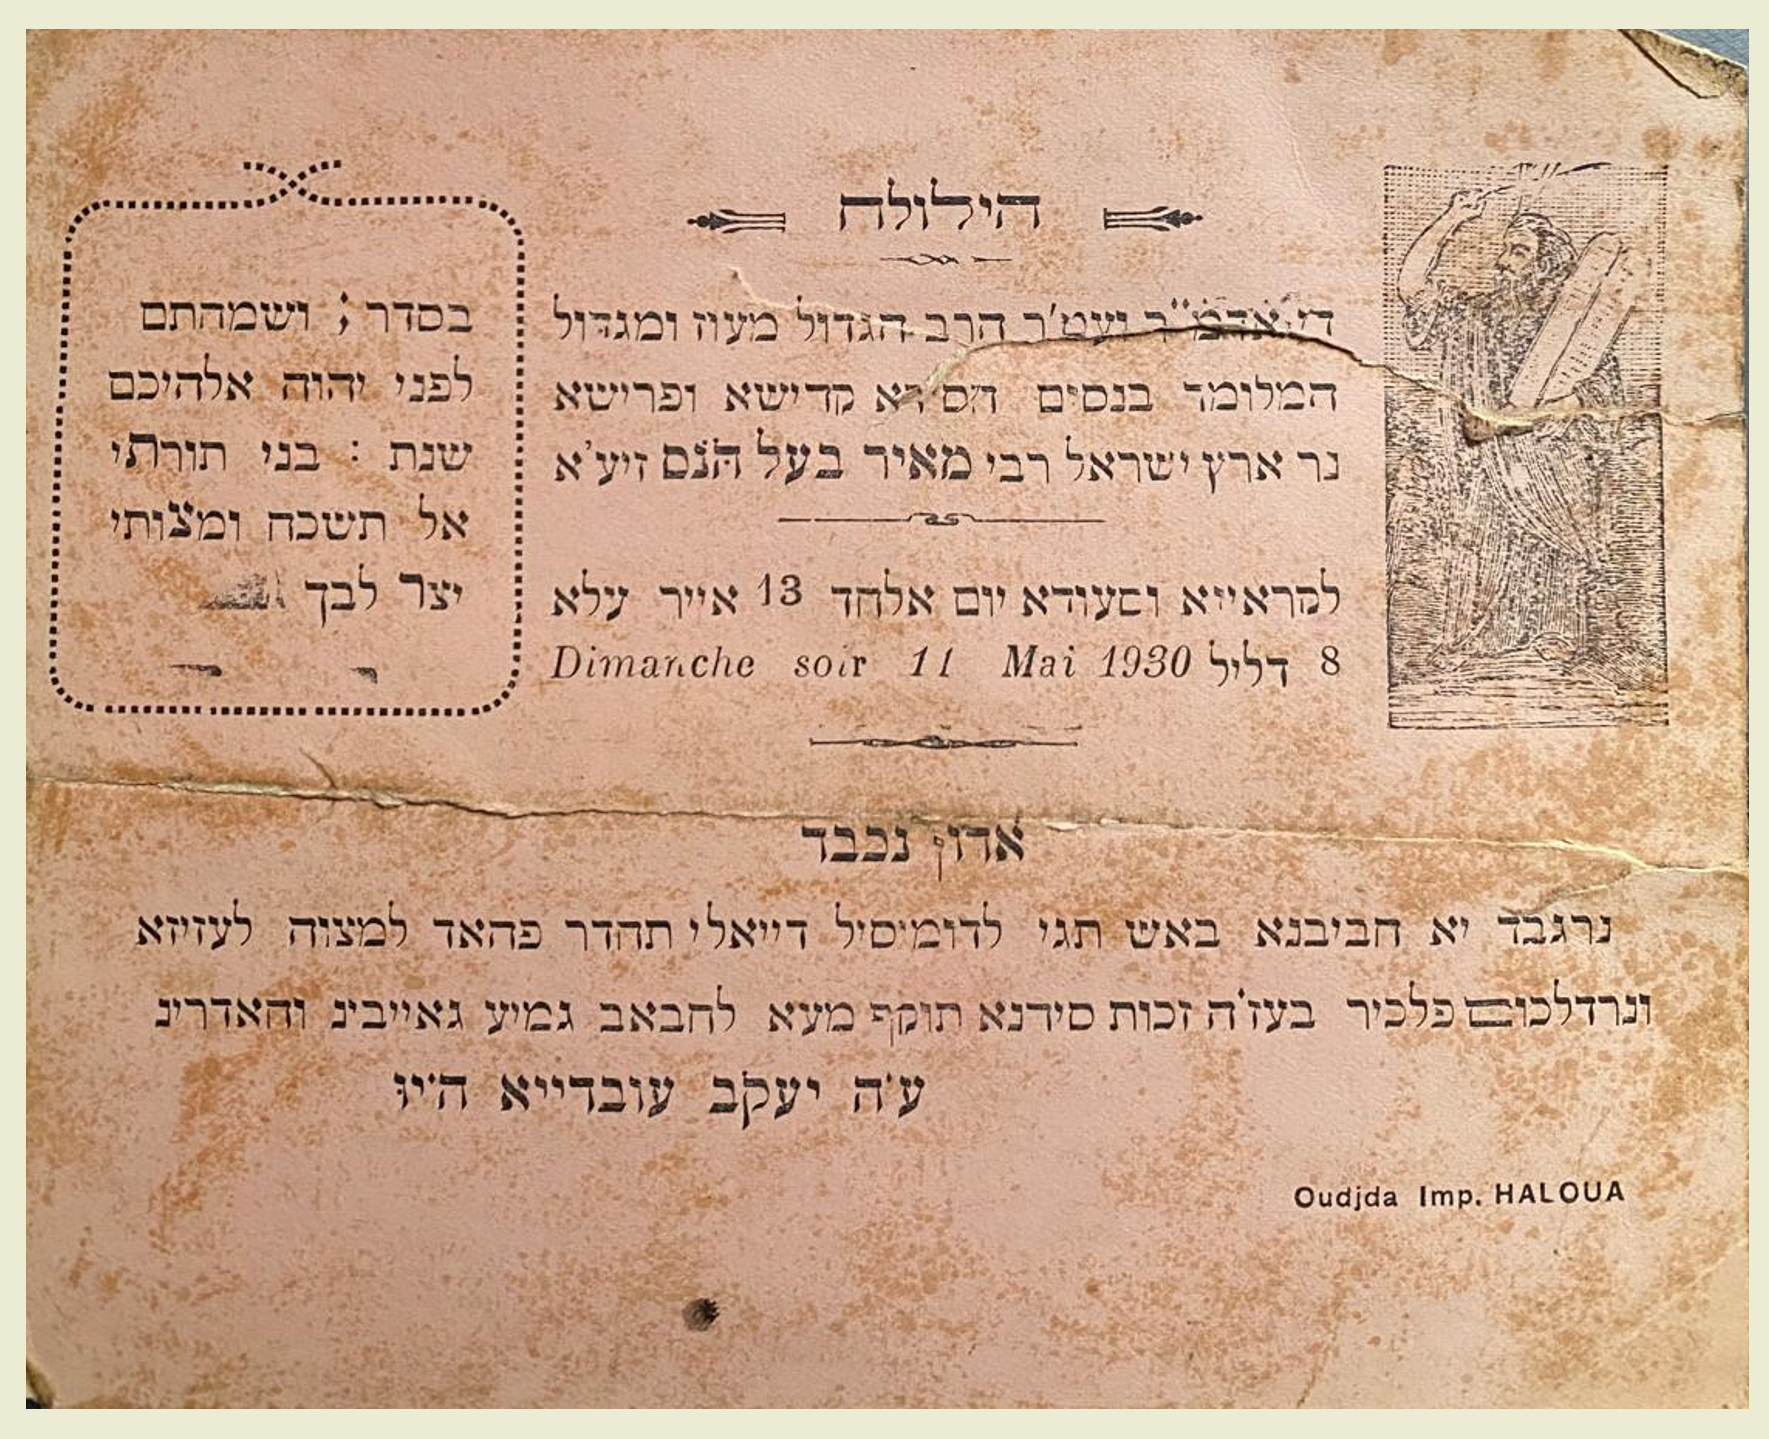 הילולה
די אדמ״ר ועט'ר הרב הגדול מעוז ומגדול
המלומד בנסים קדישא ופרישא
נר ארץ ישראל רבי מאיר בעל הנס זיע'א
לקראייא וסעודא יום אלחד 13 אייר עלא
8 דליל Dimanche soir 11 Mai 1930
בסדר ; ושמהתם
לפני יהוה אלהיכם
שנת : בני תורתי
אל תשכח ומצותי
יצר לבך
אדון נכבד
נרגבד יא חביבנא באש תגי לדומיסיל דייאלי תהדר פהאד למצוה לעזיזא
ונרדלכום פלכיר בעז'ה זכות סידנא תוקף מעא לחבאב גמיע גאייבינ והאדרינ
ע'ה יעקב עובדייא הי'ו
Oudjda Imp. HALOUA